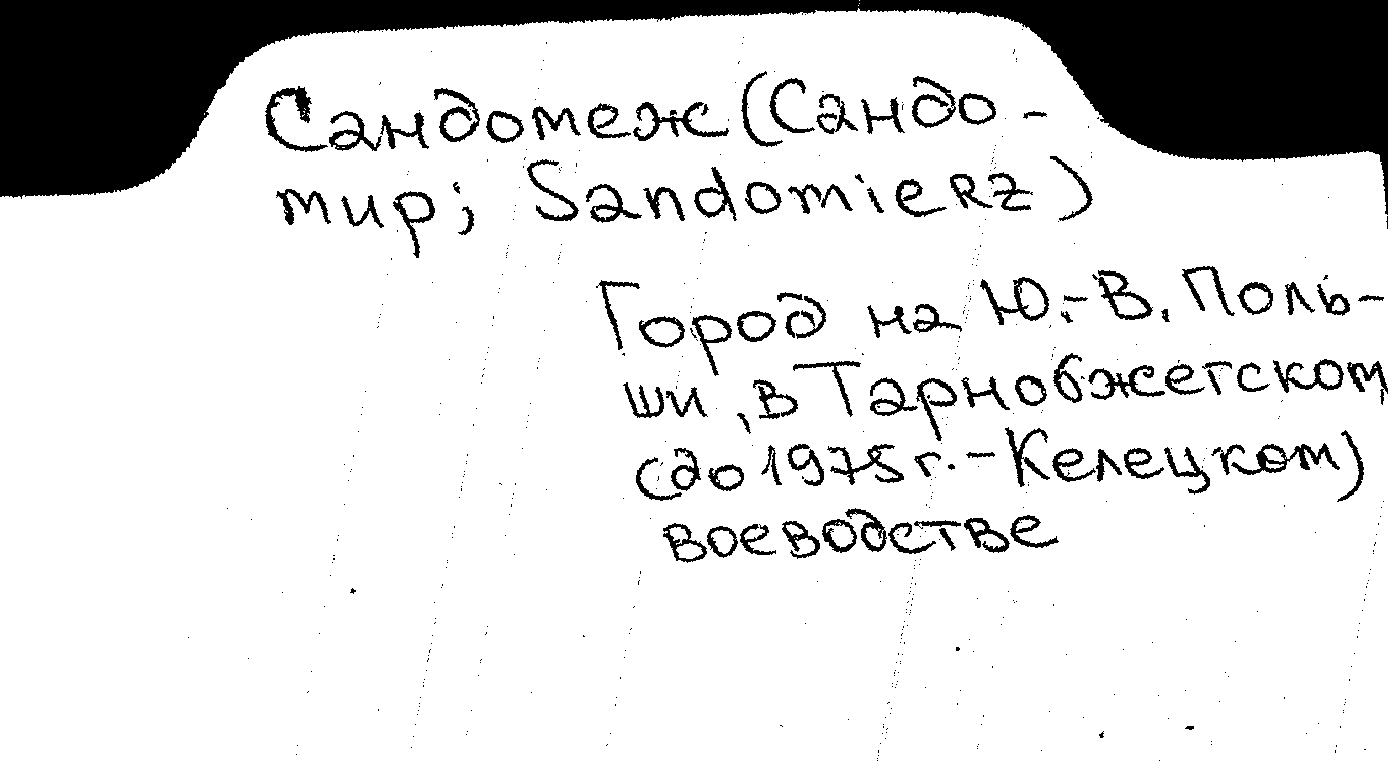 Сандомеж (Сандо-
мир; Sandomierz)
Город на Ю.-В. Поль-
ши, в Тарнобжегском
(до 1975 г. - Келецком)
воеводстве